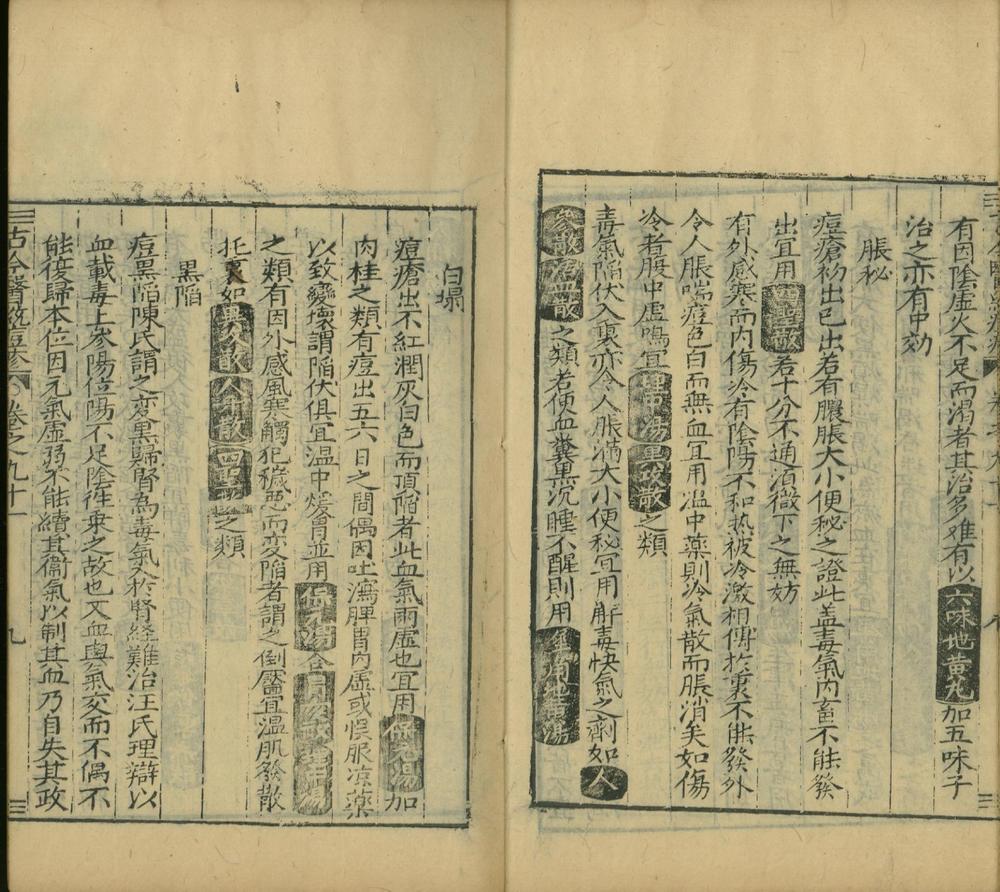 有因陰虛火不足而渴者其治多難有以六味地黄丸加五味子
治之亦有中効
脹秘
痘瘡初出已出若有臌脹大小便秘之證此盖毒氣内畜不能發
出宜用四聖散若十分不通湏微下之無妨
有外感寒而内傷冷有陰陽不和热被冷激相傳於裏不能發外
令人脹喘痘色白而無血宜用温中薬則冷氣散而脹消矣如傷
冷者股中虚鳴宜理中湯散之類
毒氣陥伏入裏亦令人脹滿大小便秘宜用解毒快氣之劑如人
參敗毒散之類若便血糞黒沉睡不醒則用地黄湯
白塌
痘瘡出不紅潤灰白色而頂陥者此血氣兩虛也宜用保元湯加
肉桂之類有痘出五六日之間偶因吐瀉脾胃内虛或悞服凉薬
以致變壊謂陥伏俱宜温中煖胃並用湯合湯
之類有因外感風寒觸犯穢悪而変陥者謂之倒黶宜温肌發散
托裏如散人散四聖散之類
黒陥
痘黒陥陳氏謂之変黒歸腎為毒氣入於腎経難治汪氏理辯以
血載毒上參陽位陽不足陰徃乗之故也又血與氣交而不偶不
能復歸本位因元氣虛弱不能續其衞氣以制其血乃自失其政
古今醫統痘疹
卷之九十一
九